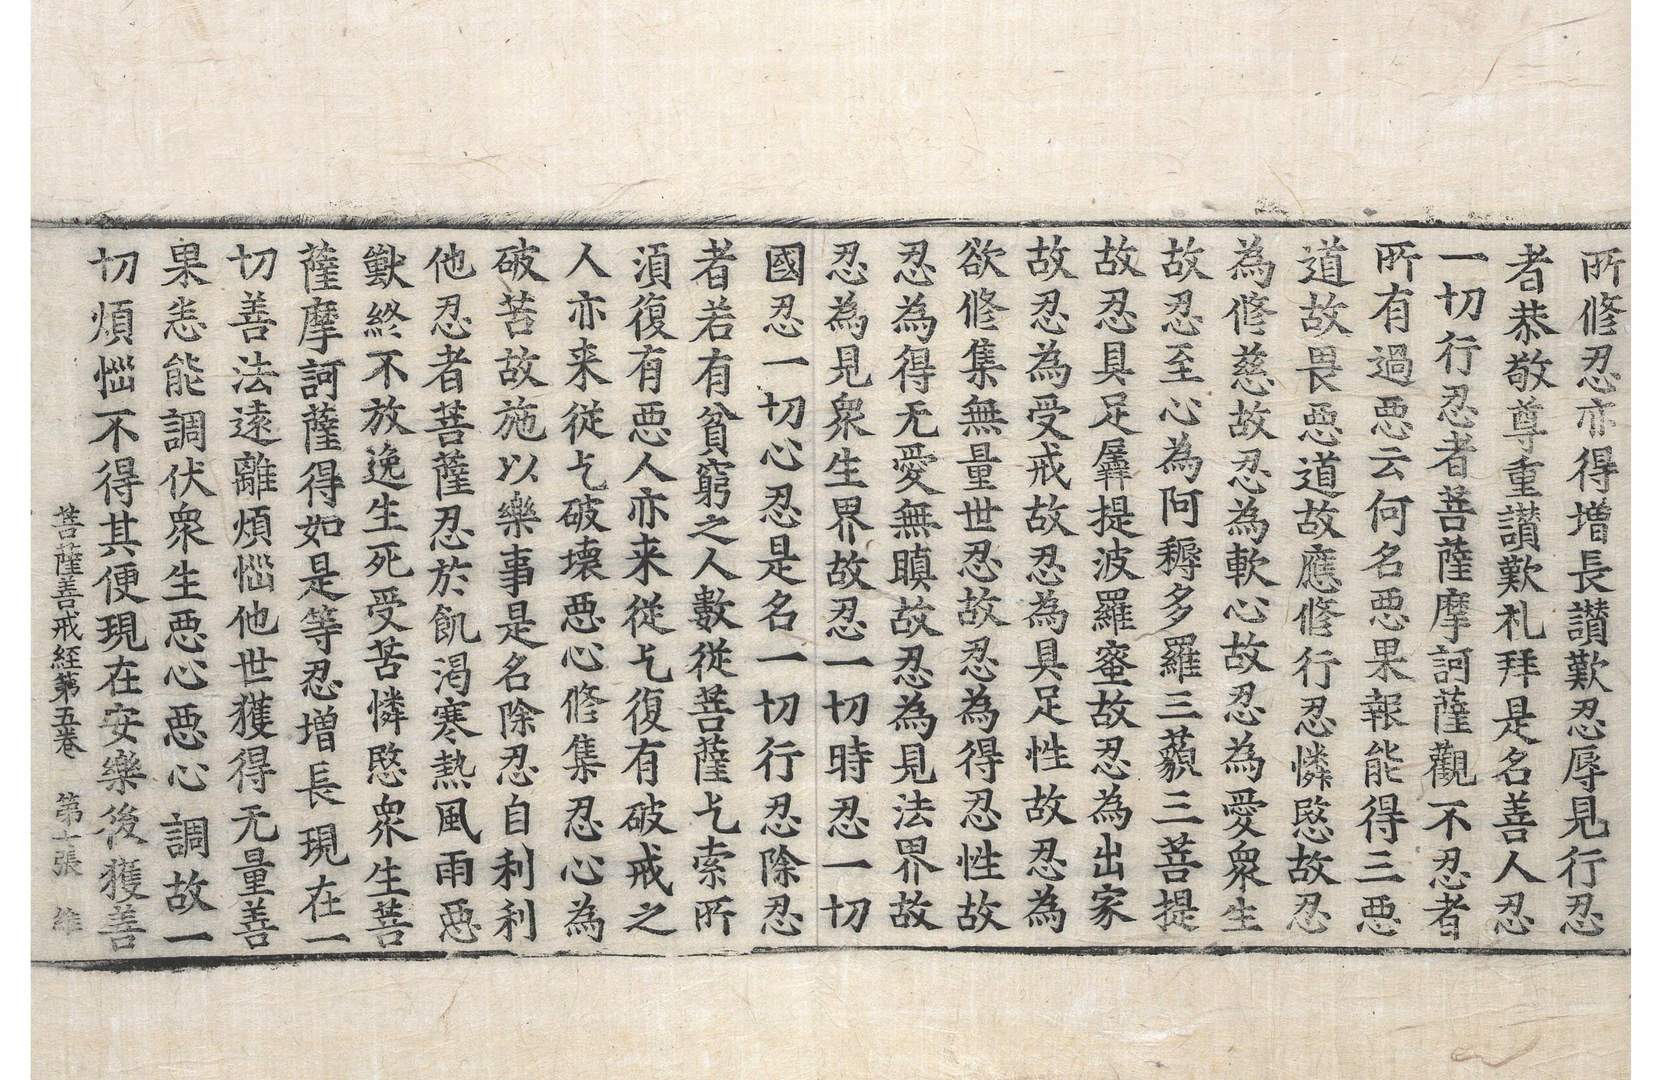 所修忍亦得增長讃歎忍辱見行忍
者恭敬尊重讃歎礼拜是名善人忍
一切行忍者菩薩摩訶薩觀不忍者
所有過惡云何名惡果報能得三惡
道故畏惡道故應修行忍憐愍故忍
為修慈故忍為軟心故忍為愛衆生
故忍至心為阿耨多羅三藐三菩提
故忍具足羼提波羅蜜故忍為出家
故忍為受戒故忍為具足性故忍為
欲修集無量世忍故忍為得忍性故
忍為得无愛無瞋故忍為見法界故
忍為見衆生界故忍一切時忍一切
國忍一切心忍是名一切行忍除忍
者若有貧窮之人數從菩薩乞索所
湏復有惡人亦来從乞復有破戒之
人亦来從乞破壊惡心修集忍心為
破苦故施以樂事是名除忍自利利
他忍者菩薩忍於飢渴寒熱風雨惡
獸終不放逸生死受苦憐愍衆生菩
薩摩訶薩得如是等忍增長現在一
切善法遠離煩惱他世獲得无量善
果恙能調伏衆生惡心惡心調故一
切煩惱不得其便現在安樂後獲善
菩薩善戒経第五巻 第十張 維